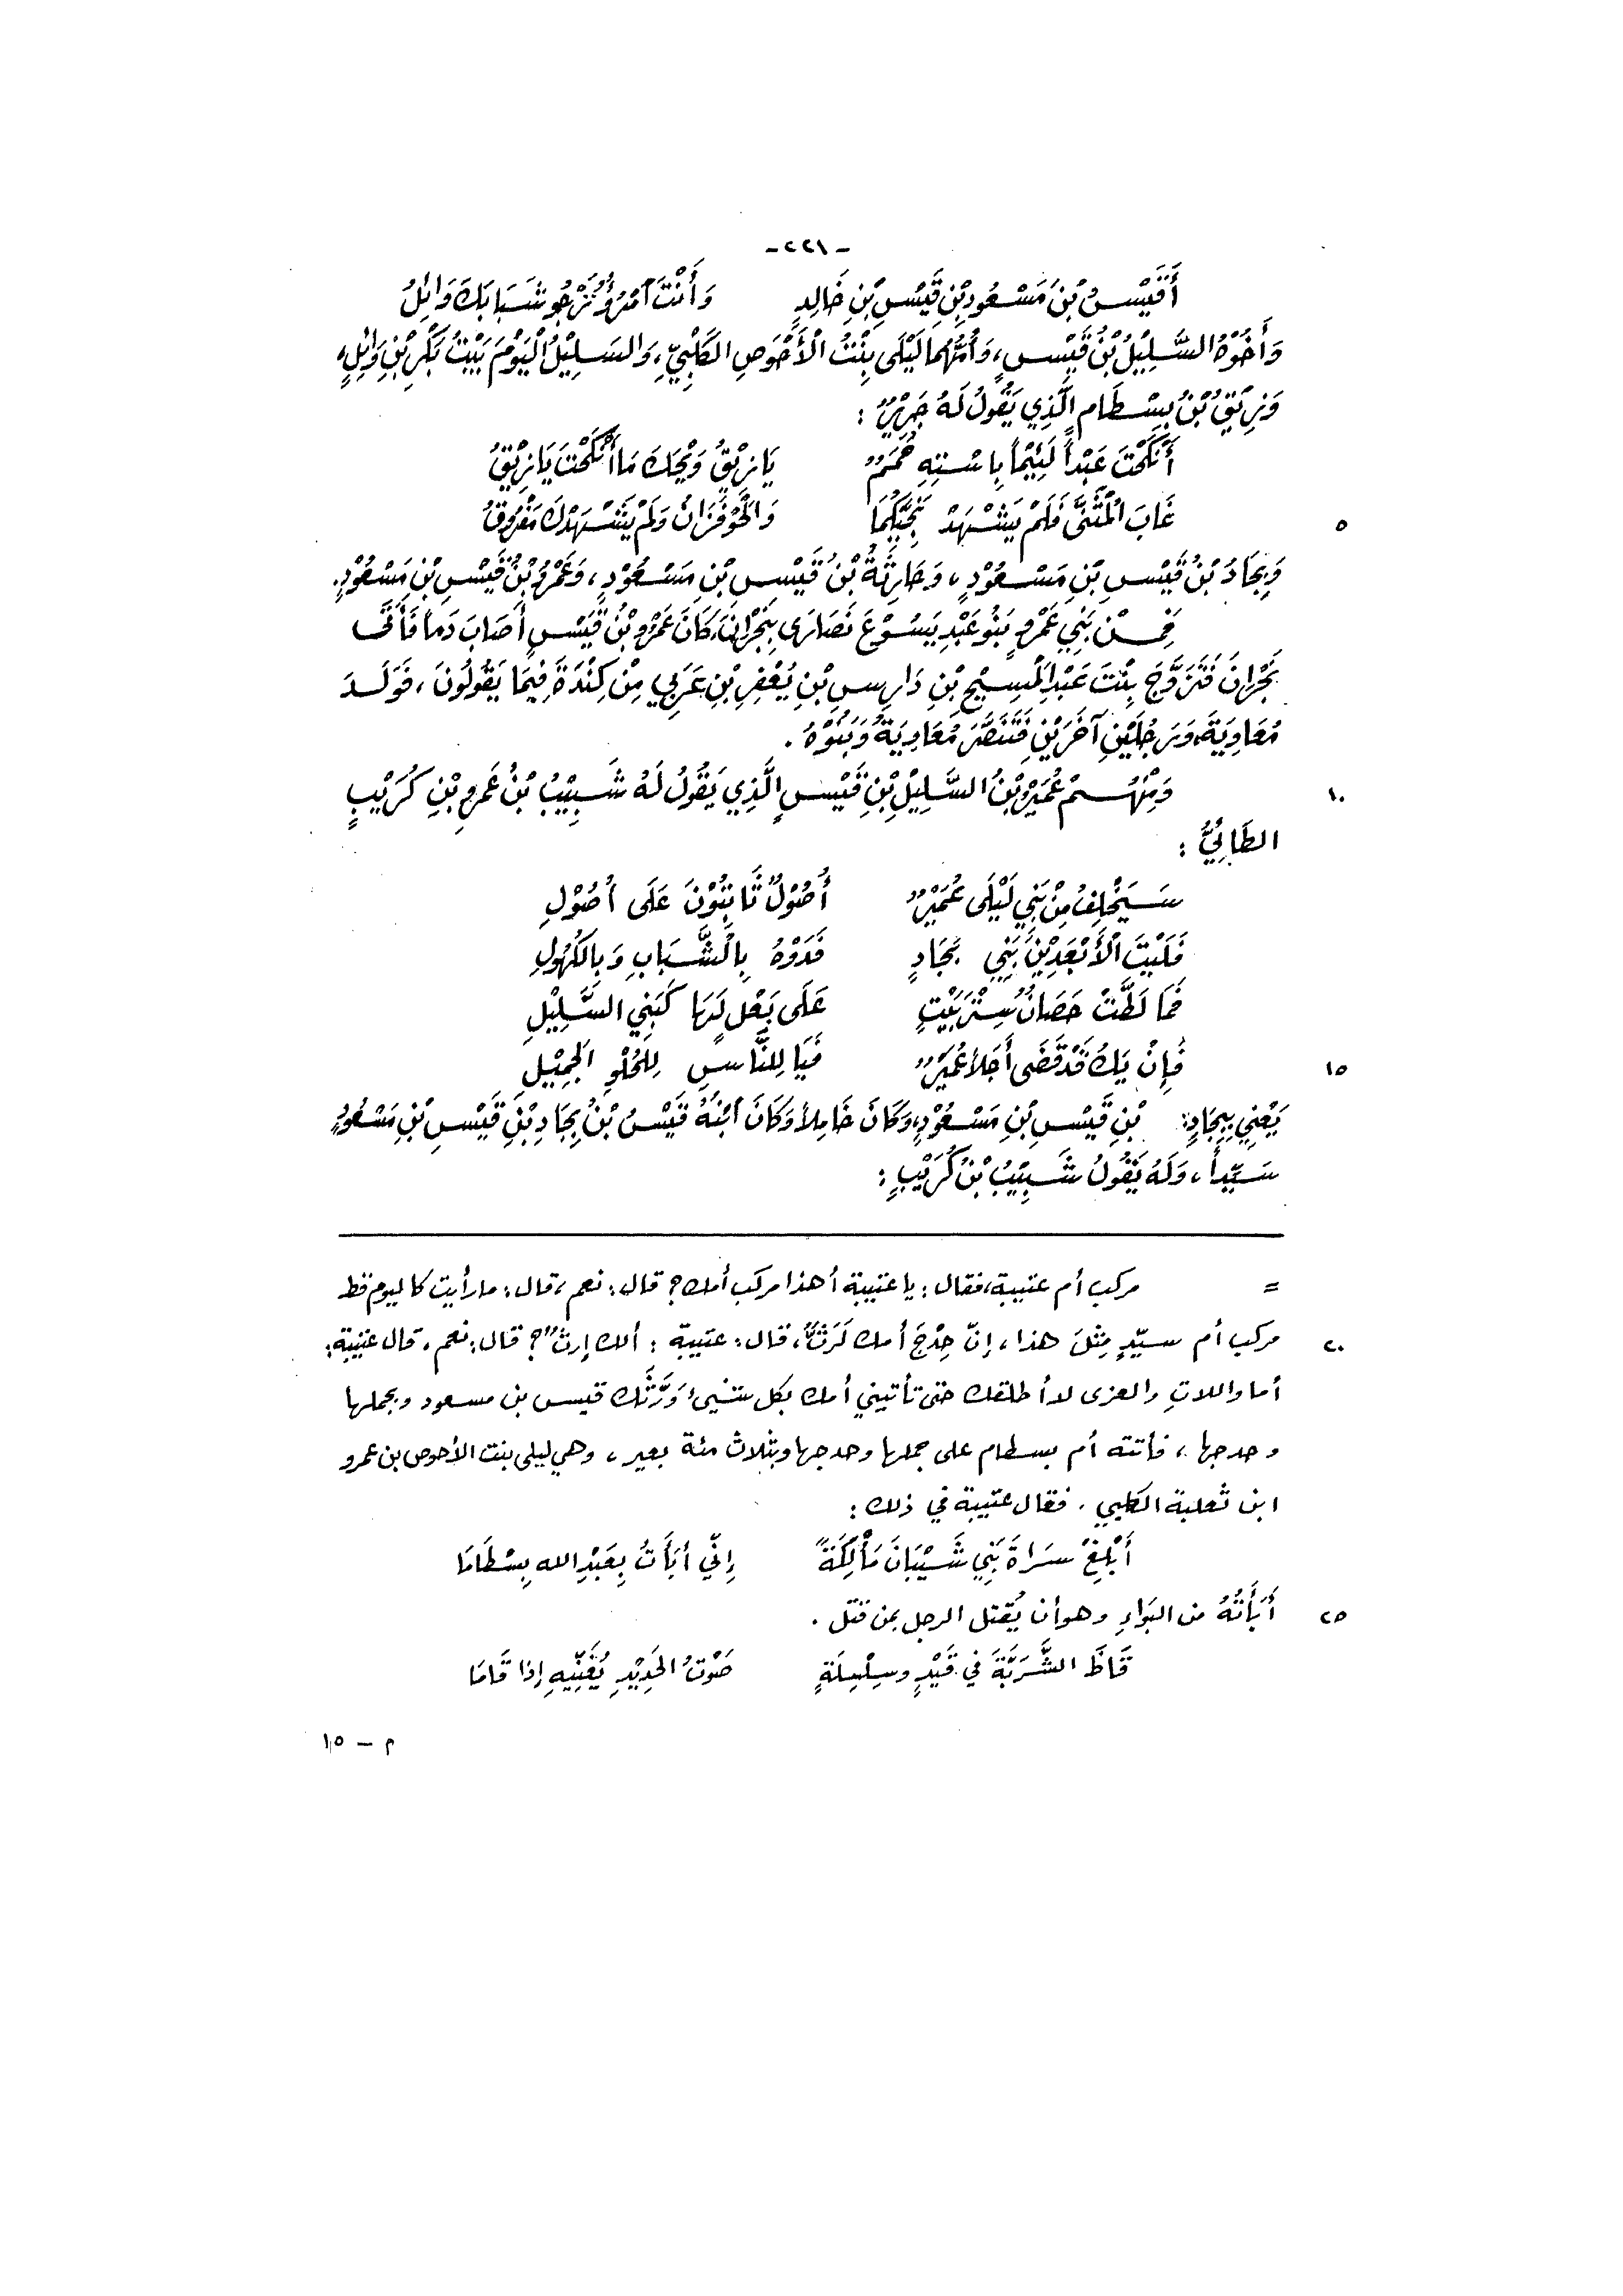 -٢٢١-
أَقَيْسُ بْنَ مَسْعُودِ بْنِ قَيْسِ بْنِ خَالِدٍ وَأَنْتَ آمْرُؤٌ تَرْجُو شَبَابَكَ وَائِلُ
وَأَخُوْهُ السَّلِيْلُ بْنُ قَيْسٍ، وَأُمُّهُمَا لَيْلَى بِنْتُ الْأَحْوَصِ الكَلْبِيِّ، وَالسَلِيْلُ الْيَوْمَ بَيْتُ بَكْرِ بْنِ وَائِلٍ،
وَزِيْقُ بْنُ بِسْطَامٍ الَّذِي يَقُولُ لَهُ جَرِيْرٌ :
أَنْكَحْتَ عَبْداً لَئِيْماً بِاسْتِهِ حُمَمٌ يَازِيْقُ وَيْحَكَ مَا أَنْكَحْتَ يَا زِيْقُ
٥ غَابَ الْمُثَنَّى فَلَمْ يَشْهَدْ نَجِيَّكُمَا وَالحَوْفَزَانُ وَلَمْ يَشْهَدْكَ مَفْرُوقُ
وَبِجَادُ بْنُ قَيْسِ بْنِ مَسْعُوْدٍ، وَحَارِثَةُ بْنُ قَيْسِ بْنِ مَسْعُوْدٍ، وَعَمْرُو بْنُ قَيْسِ بْنِ مَسْعُوْدٍ.
فَمِنْ بَنِي عَمْرٍو بَنُو عَبْدِ يَسُوْعَ نَصَارَى بِنَجْرَانَ، كَانَ عَمْرُو بْنُ قَيْسٍ أَصَابَ دَماً فَأَتَى
نَجْرَانَ فَتَزَوَّجَ بِنْتَ عَبْدِ الْمَسِيْحِ بْنِ دَارِسِ بْنِ يُعْفِرِ بْنِ عَرَبِي مِنْ كِنْدَةَ فِيْمَا يَقُولُونَ، فَوَلَدَ
مُعَاوِيَةَ، وَرَجُلَيْنِ آخَرَيْنِ فَتَنَصَّرَ مُعَاوِيَةُ وَبَنُوْهُ .
١٠ وَمِنْهُمْ عُمَيْرُ بْنُ السَّلِيْلِ بْنِ قَيْسٍ الَّذِي يَقُولُ لَهُ شَبِيْبُ بْنُ عَمْرِو بْنِ كُرَيْبٍ
الطَائِيُّ :
سَيَخْلِفُ مِنْ بَنِي لَيْلَى عُمَيْرٌ أُصُوْلٌ ثَابِتُوْنَ عَلَى أُصُوْلِ
فَلَيْتَ الْأَبْعَدِيْنَ بَنِي بِجَادٍ فَدَوْهُ بِالشَّبَابِ وَبِالكُهُولِ
فَمَا لَطَّتْ حَصَانٌ سِتْرَ بَيْتٍ عَلَى بَعْلٍ لَهَا كَبَنِي السَّلِيْلِ
١٥ فَإِنْ يَكُ قَدْ قَضَى أَجَلاً عُمَيْرٌ فَيَا لِلنَّاسِ لِلحُلْوِ الجَمِيْلِ
يَعْنِي بِبِجَادٍ: بْنِ قَيْسِ بْنِ مَسْعُوْدٍ، وَكَانَ خَامِلاً وَكَانَ ابْنُهُ قَيْسُ بْنُ بِجَادِ بْنِ قَيْسِ بْنِ مَسْعُوْدٍ
سَيِّداً، وَلَهُ يَقُولُ شَبِيْبُ بْنُ كُرَيْبٍ :
= مركب أم عتيبة، فقال : يا عتيبة أهذا مركب أمك؟ قال : نعم، قال : ما رأيت كاليوم قط
٢٠ مركب أم سيّدٍ مِثلَ هذا، إنّ حِدْجَ أمك لَرَثٌّ، قال: عتيبة : ألك إرثٌ؟ قال : نعم، قال عتيبة :
أما واللاتِ والعزى لا أطلقك حتى تأتيني أمك بكل شيء وَرَّثَك قيس بن مسعود وبجملها
وحدجها، فأتته أم بسطام على جملها وحدجها وبثلاث مئة بعير، وهي ليلى بنت الأحوص بن عمرو
ابن ثعلبة الكلبي . فقال عتيبة في ذلك :
أَبْلِغْ سَرَاةَ بَنِي شَيْبَانَ مَأْلُكَةً إِنِّي أَبَأتُ بِعَبْدِ الله بِسْطَامَا
٢٥ أَبَأتُهُ من البَوَاءِ وهو أن يُقتل الرجل بمن قتل .
قَاظَ الشَّرَبَّةَ في قَيْدٍ وسِلْسِلَةٍ صَوْتُ الحَدِيْدِ يُغَنِّيهِ إذا قَامَا
م - ١٥